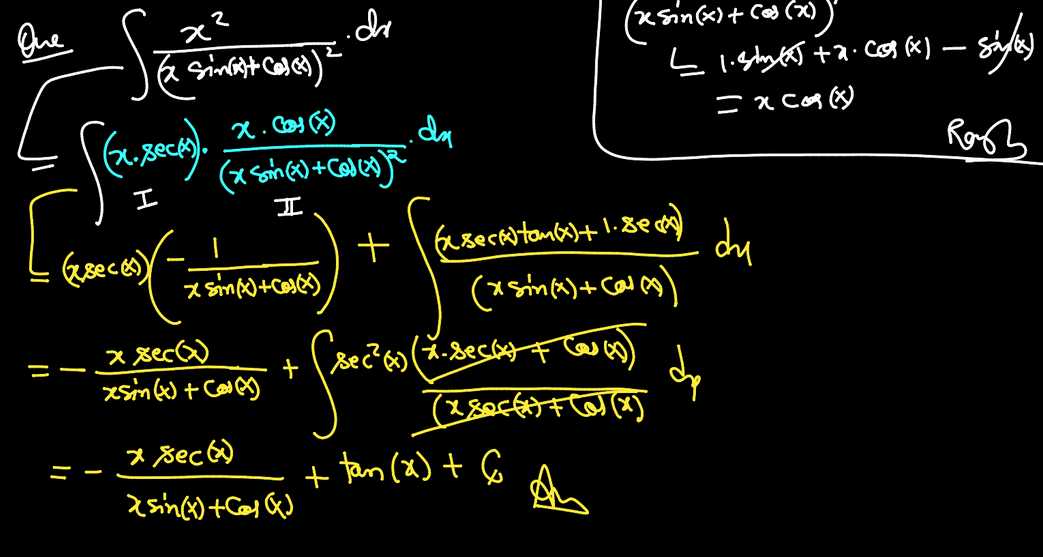 Que ∫ x² / (x sin(x) + cos(x))² · dx
= ∫ (x·sec(x)) · x·cos(x) / (x sin(x) + cos(x))² · dx
I II
= (x sec(x)) (- 1 / x sin(x) + cos(x)) + ∫ (x sec(x) tan(x) + 1·sec(x)) / (x sin(x) + cos(x)) dx
= - x sec(x) / x sin(x) + cos(x) + ∫ sec²(x) (x·sec(x) + cos(x)) / (x sec(x) + cos(x) dx
= - x sec(x) / x sin(x) + cos(x) + tan(x) + C Ans
(x sin(x) + cos(x))'
↳ 1·sin(x) + x·cos(x) - sin(x)
= x cos(x)
Rough